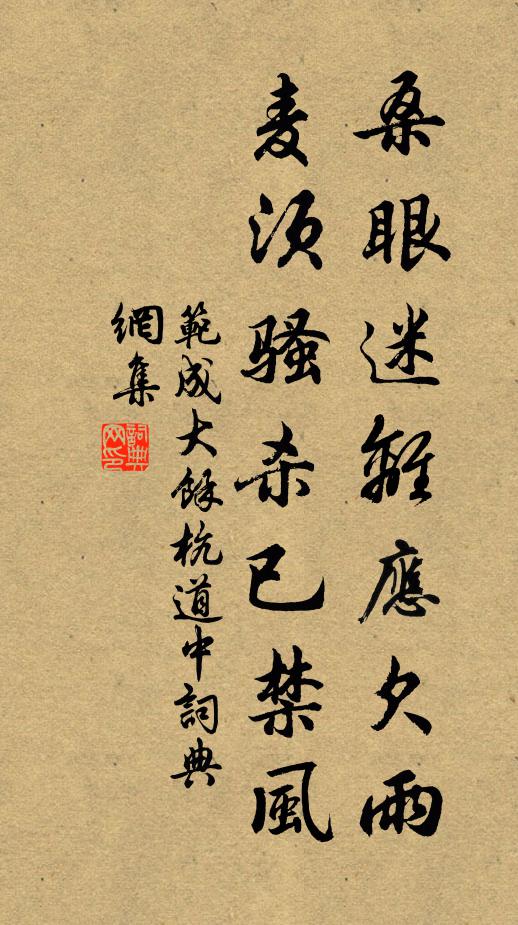 桑眼迷離應欠雨
麦須騷杀已禁風
範成大餘杭道中詞典
網集
詞典
网印